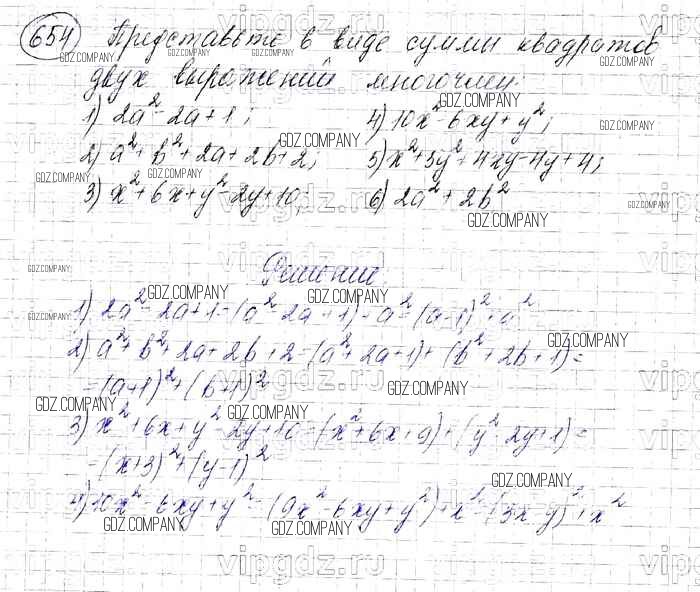 654 Представьте в виде суммы квадратов
двух выражений многочлен:
1) 2a² - 2a + 1; 4) 10x² - 6xy + y²;
2) a² + b² + 2a + 2b + 2; 5) x² + 5y² + 4xy - 4y + 4;
3) x² + 6x + y² - 2y + 10; 6) 2a² + 2b²
Решение
1) 2a² - 2a + 1 = (a² - 2a + 1) + a² = (a - 1)² + a²
2) a² + b² + 2a + 2b + 2 = (a² + 2a + 1) + (b² + 2b + 1) =
= (a + 1)² + (b + 1)²
3) x² + 6x + y² - 2y + 10 = (x² + 6x + 9) + (y² - 2y + 1) =
= (x + 3)² + (y - 1)²
4) 10x² - 6xy + y² = (9x² - 6xy + y²) + x² = (3x - y)² + x²
GDZ.COMPANY
vipgdz.ru